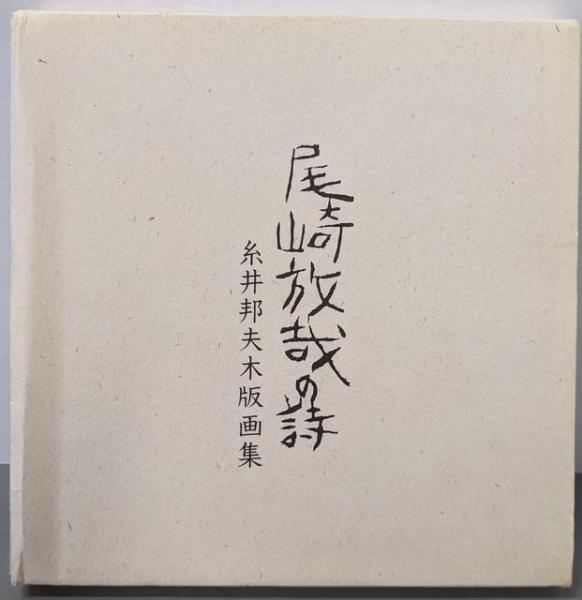 尾崎放哉の詩
糸井邦夫木版画集